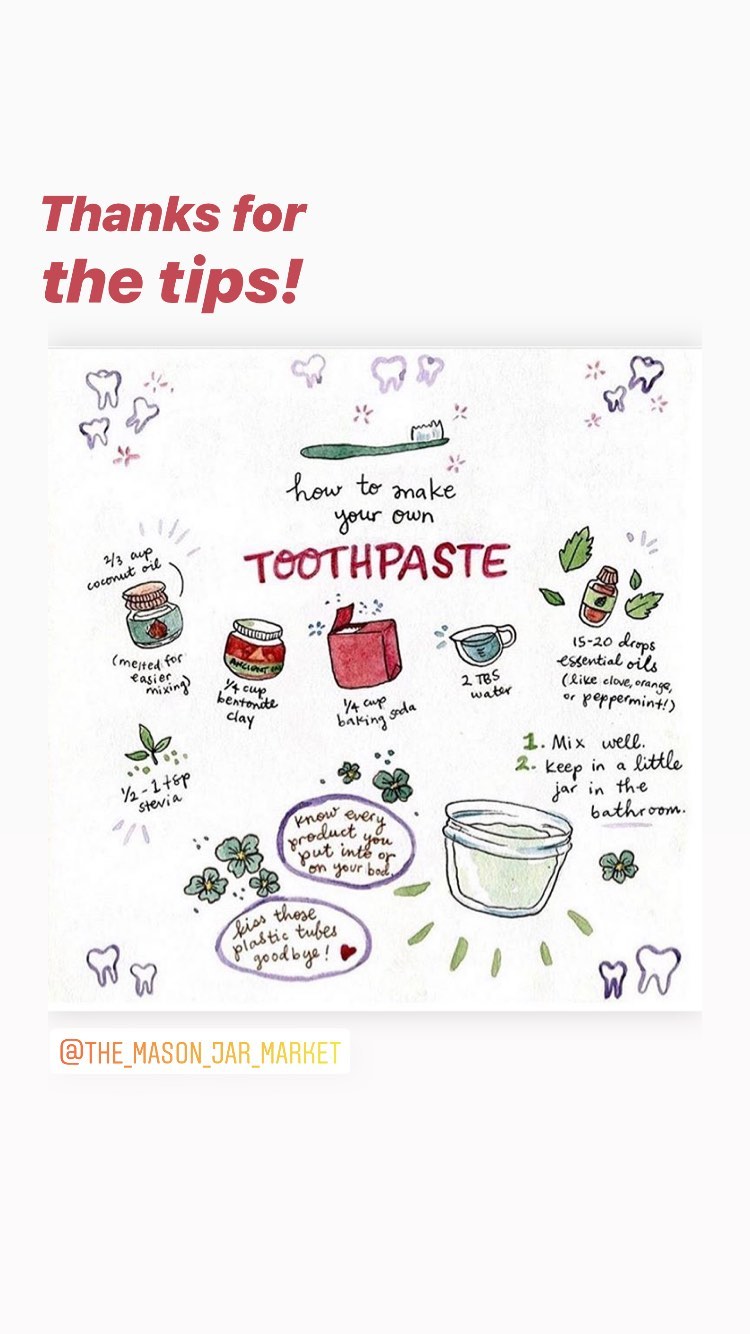 Thanks for
the tips!
how to make
your own
TOOTHPASTE
2/3 cup
coconut oil
(melted for
easier
mixing)
ANCIENT
1/4 cup
bentonite
clay
1/4 cup
baking soda
2 TBS
water
15-20 drops
essential oils
(like clove, orange,
or peppermint!)
1/2 - 1 tsp
stevia
1. Mix well.
2. Keep in a little
jar in the
bathroom.
know every
product you
put into or
on your bod.
kiss those
plastic tubes
goodbye!
@THE_MASON_JAR_MARKET